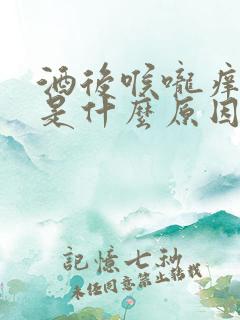 酒後喉嚨癢
是什麼原因
記憶七秒
未經同意禁止轉載